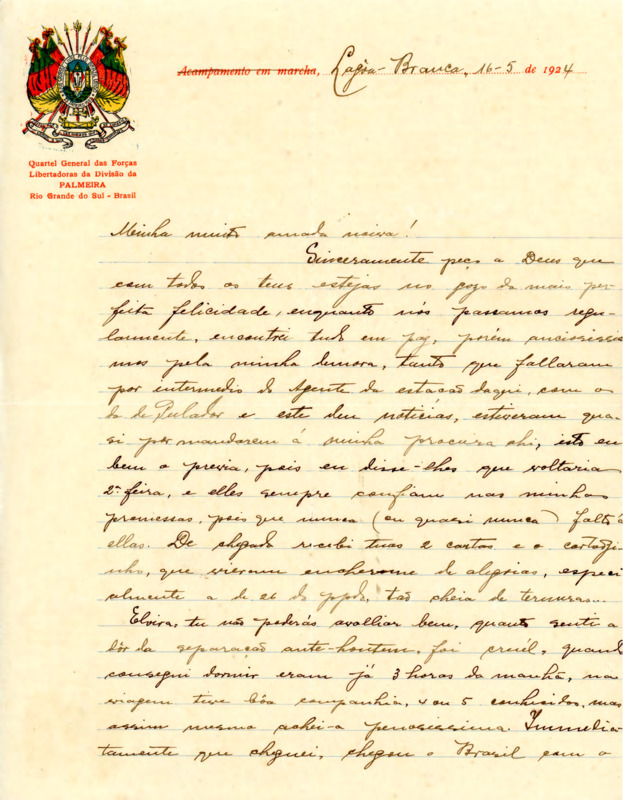 Acampamento em marcha, Lagôa-Branca, 16-5 de 1924
Quartel General das Forças
Libertadoras da Divisão da
PALMEIRA
Rio Grande do Sul - Brasil
Minha muito amada noiva!
Sinceramente peço a Deus que
com todos os teus estejas no gozo da mais per
feita felicidade, enquanto nós passamos regu-
larmente, encontrei tudo em paz, porém anciosissi
mos pela minha demora, tanto que fallaram
por intermedio do Agente da estação daqui, com o
da de Pulador e este deu notícias, estiveram qua-
si por mandarem á minha procura ahi, isto eu
bem o previa, pois eu disse-lhes que voltaria
2ª feira, e elles sempre confiam nas minhas
promessas, pois que nunca (ou quasi nunca) falto á
ellas. De chegada recebi tuas 2 cartas e o cartãozi-
nho, que vieram encherome de alegrias, especi
almente a de do ppdo, tão cheia de ternuras...
Elvira, tu não poderás avalliar bem, quanto senti a
dôr da separação ante-hontem, foi cruél, quand
consegui dormir eram já 3 horas da manhã, na
viagem tive bôa companhia, 4 ou 5 conhecidos, mas
assim mesmo achei-a penosissima. Immedia-
tamente que cheguei, chegou o Brasil com o